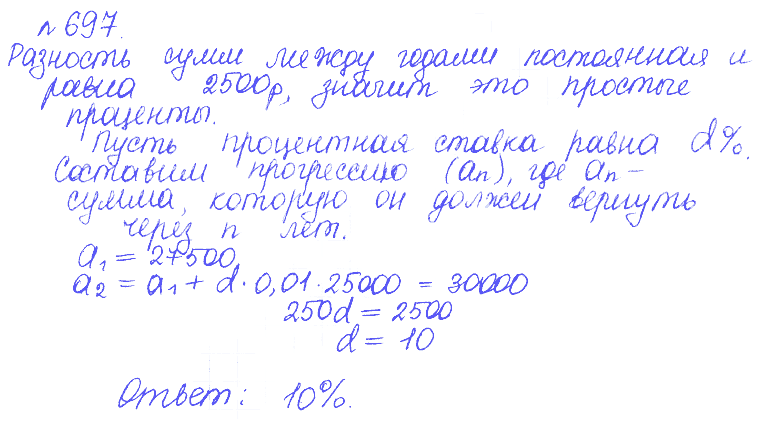 n 697.
Разность сумм между годами постоянная и
равна 2500р, значит это простые
проценты.
Пусть процентная ставка равна d%.
Составим прогрессию (an), где an-
сумма, которую он должен вернуть
через n лет.
a1 = 27500
a2 = a1 + d·0,01·25000 = 30000
250d = 2500
d = 10
Ответ: 10%.